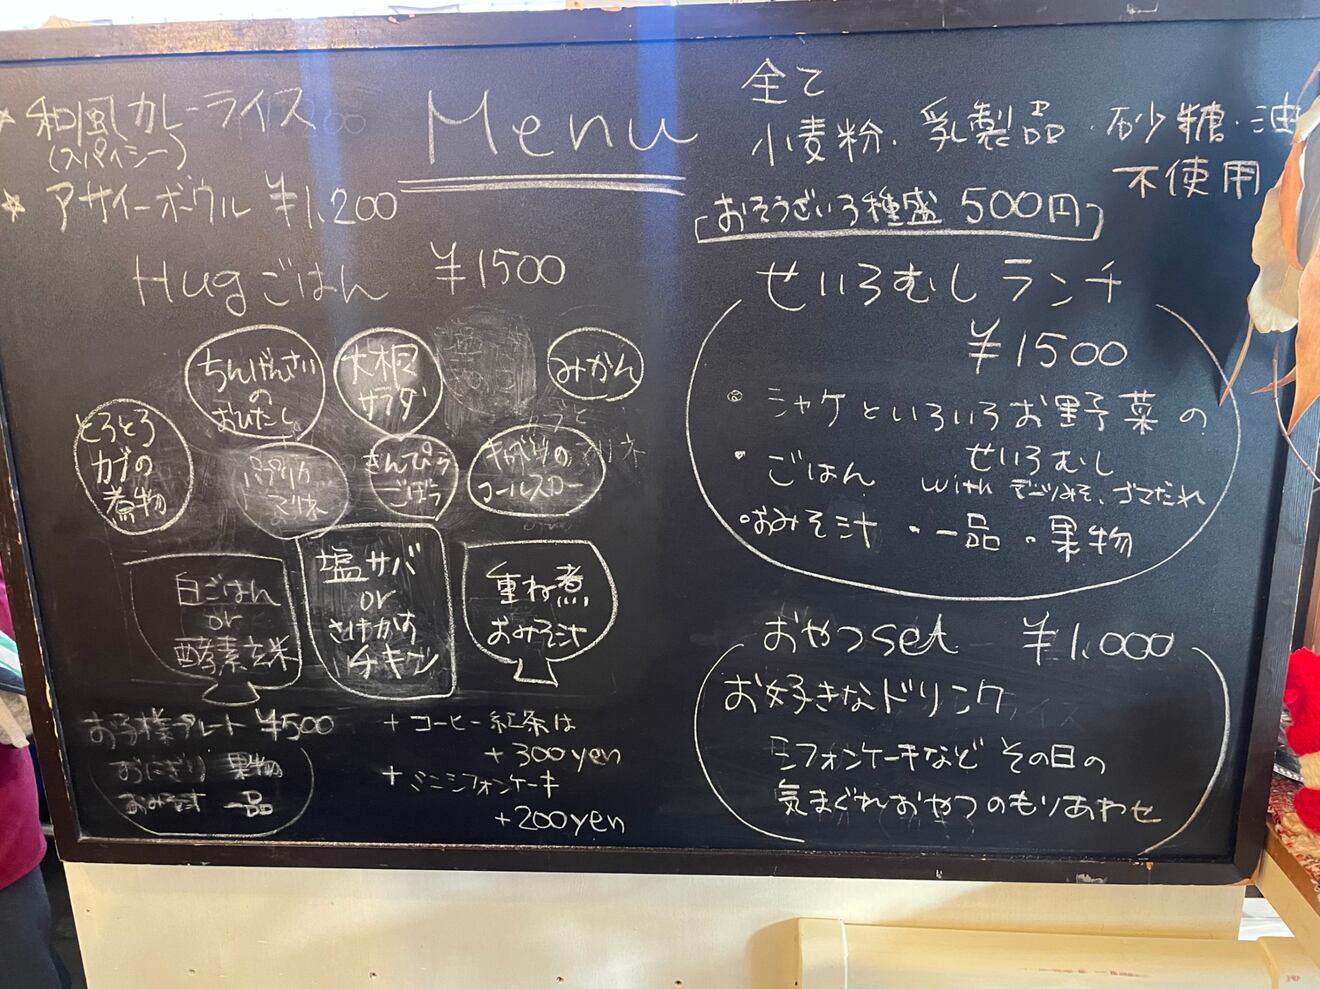 Menu
☆ 和風カレーライス
(スパイシー)
☆ アサイーボウル ¥1,200
全て
小麦粉、乳製品・砂糖・油
不使用
おそうざい3種盛 500円
Hugごはん ¥1500
ちんげんさい
の
おひたし
大根
サラダ
みかん
とろとろ
カブの
煮物
パプリカ
マリネ
きんぴら
ごぼう
キャベツの
コールスロー
白ごはん
or
酵素玄米
塩サバ
or
チキン
重ね煮
おみそ汁
お子様プレート ¥500
おにぎり 果物
おみそ汁 一品
+ コーヒー紅茶は
+300yen
+ ミニシフォンケーキ
+200yen
せいろむしランチ
¥1500
・シャケといろいろお野菜の
せいろむし
・ごはん with ゴマだれ
・おみそ汁 ・一品 ・果物
おやつset ¥1,000
お好きなドリンク
シフォンケーキなど その日の
気まぐれおやつのもりあわせ